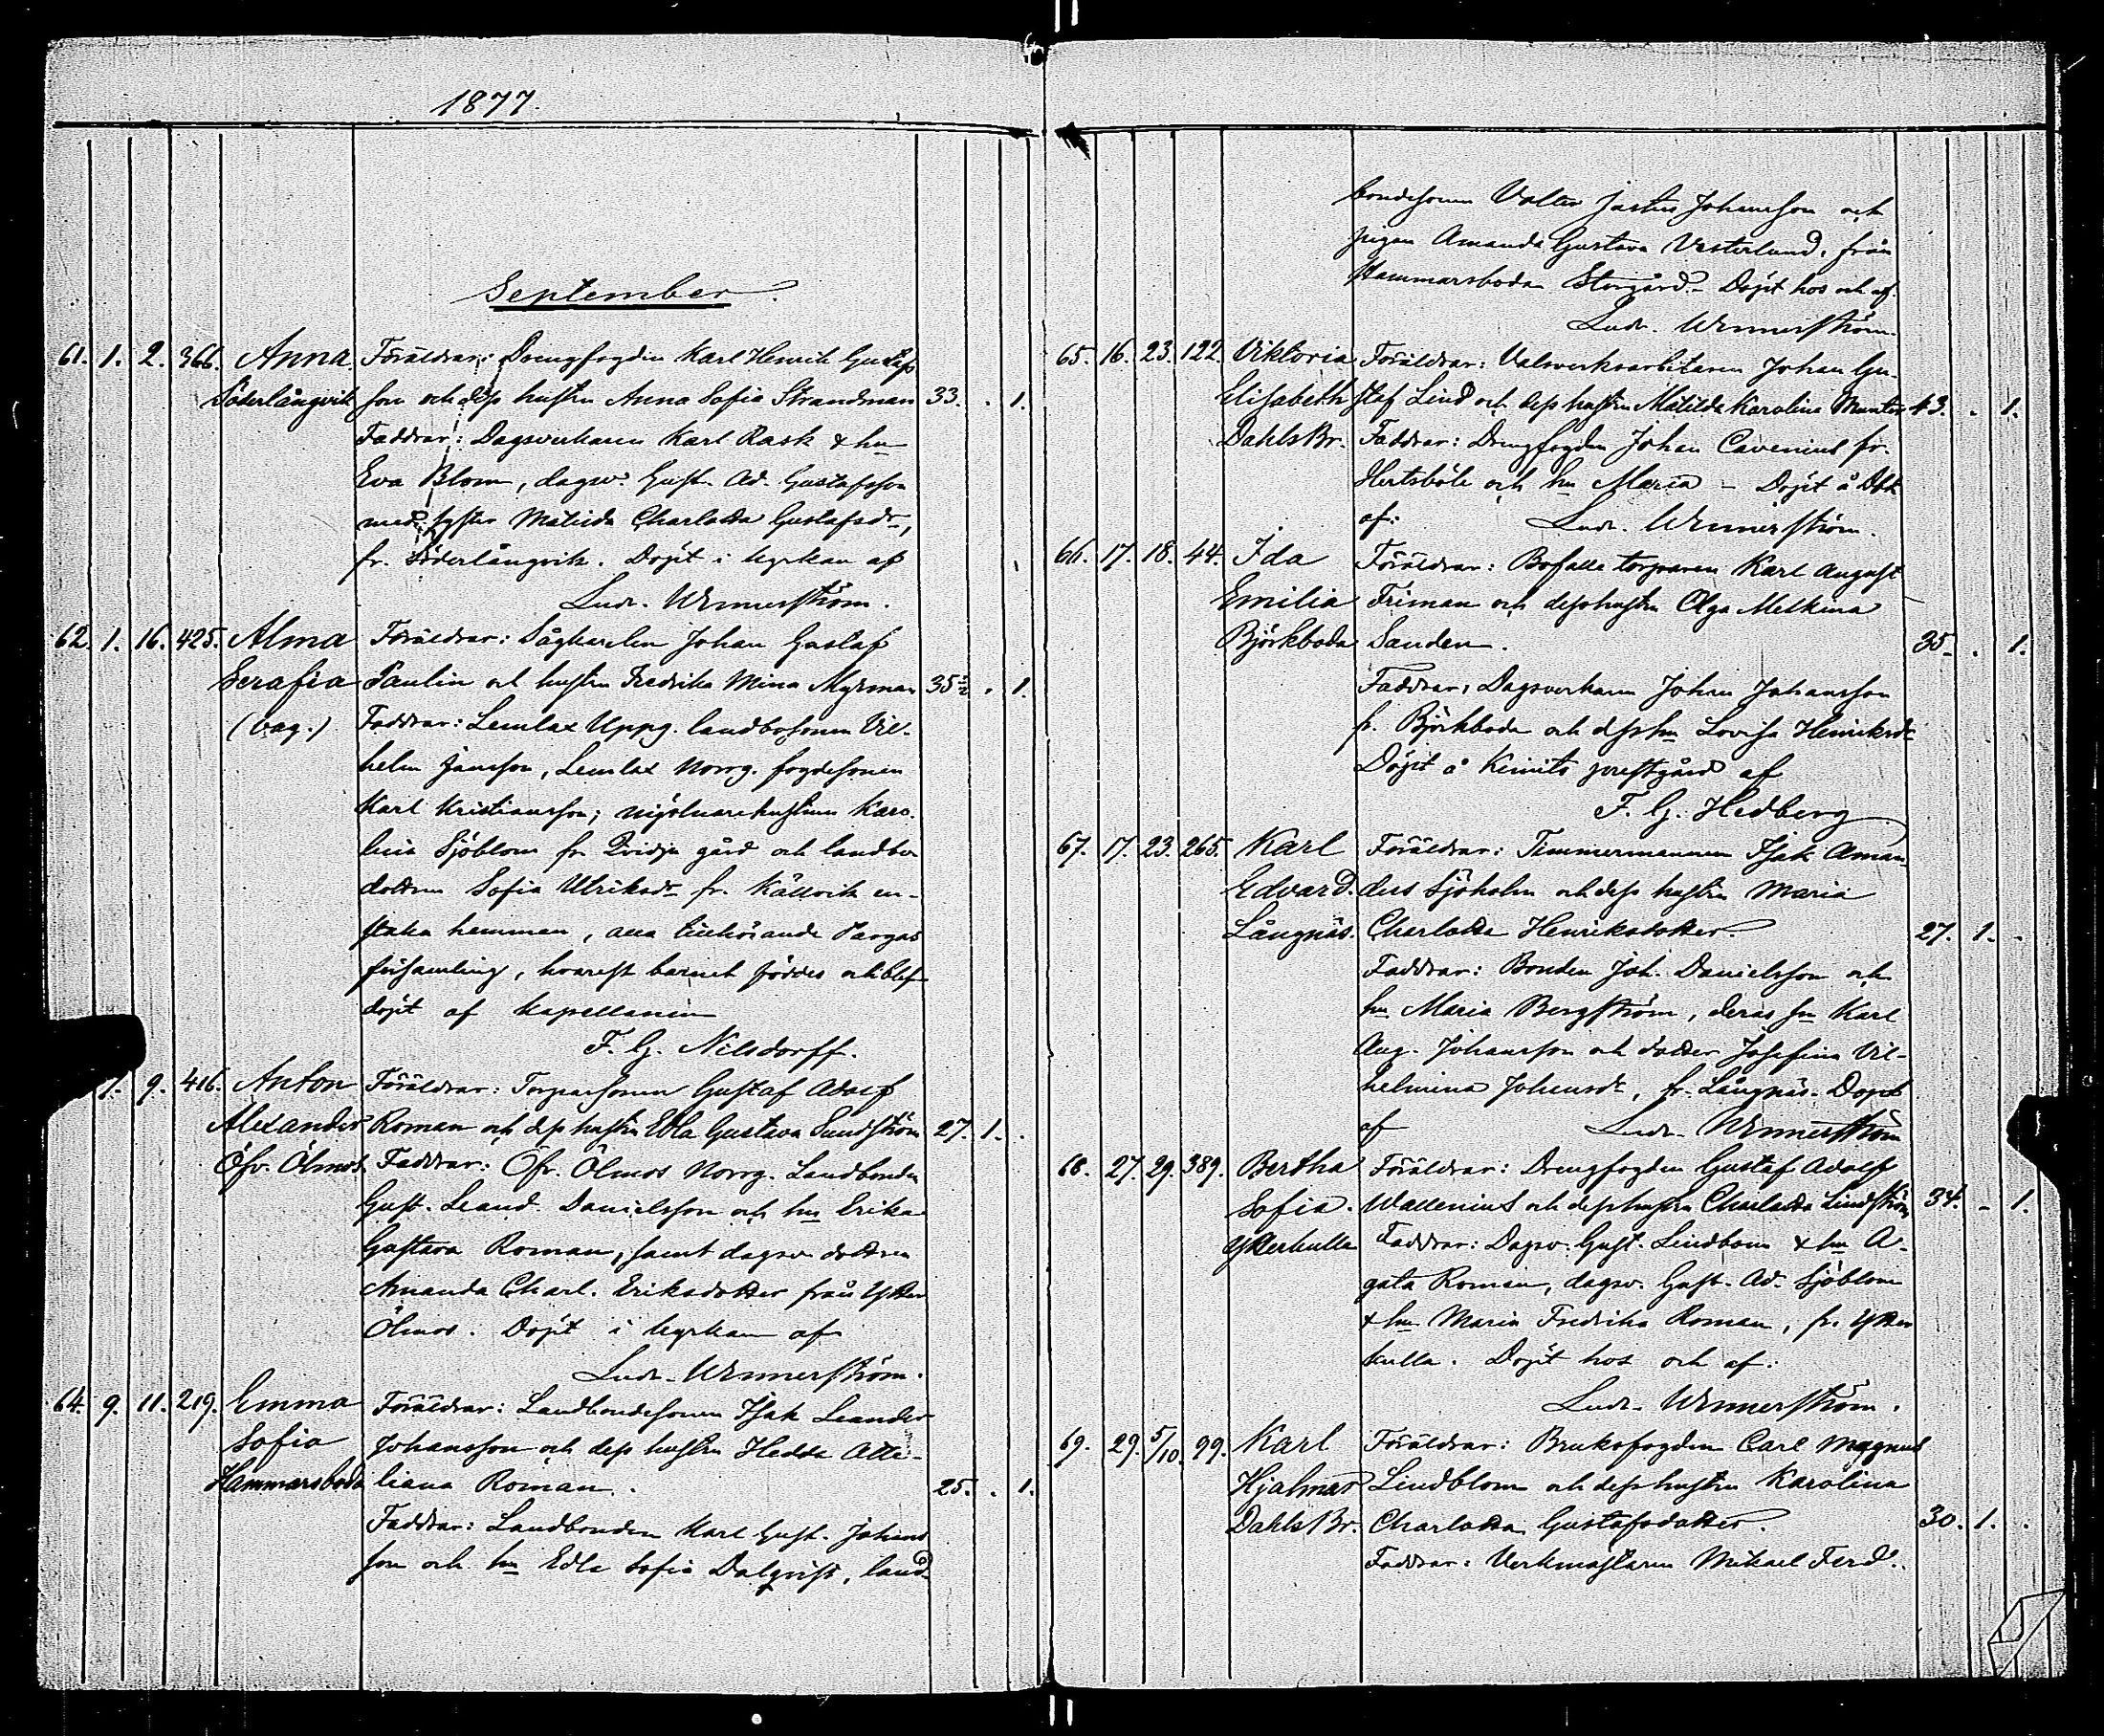 1877.
September.
61. 1. 2. 366. Anna. Föräldrar: Drengfogden Karl Henrik Gustafs
Söderlångvik son och dess hustru Anna Sofia Strandman 33. . 1.
Faddrar: Dagsverkaren Karl Rask & hu
Eva Blom, dagsv. Gust. Ad. Gustafsson
med syster Matilda Charlotta Gustafsdr,
fr. Söderlångvik. Döpt i kyrkan af
Ludv. Wennerström.
62. 1. 16. 425. Alma Föräldrar: Sågkarlen Johan Gustaf
Serafia Paulin och hustru Fredrika Mina Myrman 35½ . 1.
(vag.) Faddrar: Lemlax Uppg. landbosonen Vil-
helm Jansson, Lemlax Norrg. fogdesonen
Karl Kristiansson; mjölnarehustrun Karo-
lina Sjöblom fr. Qvidja gård och landbo
dottren Sofia Ulriksdr fr. Källvik en-
staka hemman, alla tillhörande Pargas
församling, hvarest barnet föddes och blef
döpt af kapellanen
F. G. Nilsdorff.
1. 9. 416. Anton Föräldrar: Torparsonen Gustaf Adolf
Alexander Roman och dess hustru Edla Gustava Sundström 27. 1. .
Öfv. Ölmos Faddrar: Öfv. Ölmos Norrg. Landbonden
Gust. Leand. Danielsson och hu Erika
Gustava Roman, samt dagsv. dottren
Amanda Charl. Eriksdotter från Ytter
Ölmos. Döpt i kyrkan af
Ludv. Wennerström.
64. 9. 11. 219. Emma Föräldrar: Landbondesonen Isak Leander
Sofia Johansson och dess hustru Hedda Atte-
Hammarsboda liana Roman. 25. . 1.
Faddrar: Landbonden Karl Gust. Johans
son och hu Edla Sofia Dalqvist, land-
bondesonen Valter Justus Johansson och
pigan Amanda Gustava Vesterlund, från
Hammarsboda Storgård. – Döpt hos och af
Ludv. Wennerström.
65. 16. 23. 122. Viktoria Föräldrar: Valsverksarbetaren Johan Gu-
Elisabeth staf Lind och dess hustru Matilda Karolina Munter 43. . 1.
Dahls Br. Faddrar: Drengfogden Johan Cavenius fr.
Hertsböle och hu Maria – Döpt å Dbk
af: Ludv. Wennerström.
66. 17. 18. 44. Ida Föräldrar: Bofälle torparen Karl August
Emilia Friman och dess hustru Olga Melkina
Björkboda Sanden. 35. . 1.
Faddrar: Dagsverkaren Johan Johansson
fr. Björkboda och dess hu Lovisa Henriksdr
Döpt å Kimito prestgård af
F. G. Hedberg
67. 17. 23. 265. Karl Föräldrar: Timmermannen Isak Aman
Edvard. dus Sjöholm och dess hustru Maria
Långnäs. Charlotta Henriksdotter. 27. 1. .
Faddrar: Bonden Joh. Danielsson och
hu Maria Bergström, deras son Karl
Aug. Johansson och dotter Josefina Vil-
helmina Johansdr, fr. Långnäs. Döpt
af Ludv. Wennerström
68. 27. 29. 389. Bertha Föräldrar: Drengfogden Gustaf Adolf
Sofia. Wallenius och dess hustru Charlotta Lindström 34. – 1.
Ytterkulla Faddrar: Dagsv. Gust. Lindbom & hu A-
gata Roman, dagsv. Gust. Ad. Sjöblom
& hu Maria Fredrika Roman, fr. Ytter
kulla. Döpt hos och af:
Ludv. Wennerström.
69. 29. 5/10. 99. Karl Föräldrar: Bruksfogden Carl Magnus
Hjalmar Lindblom och dess hustru Karolina
Dahls Br. Charlotta Gustafsdotter. 30. 1. .
Faddrar: Verkmästaren Mikael Ferd.